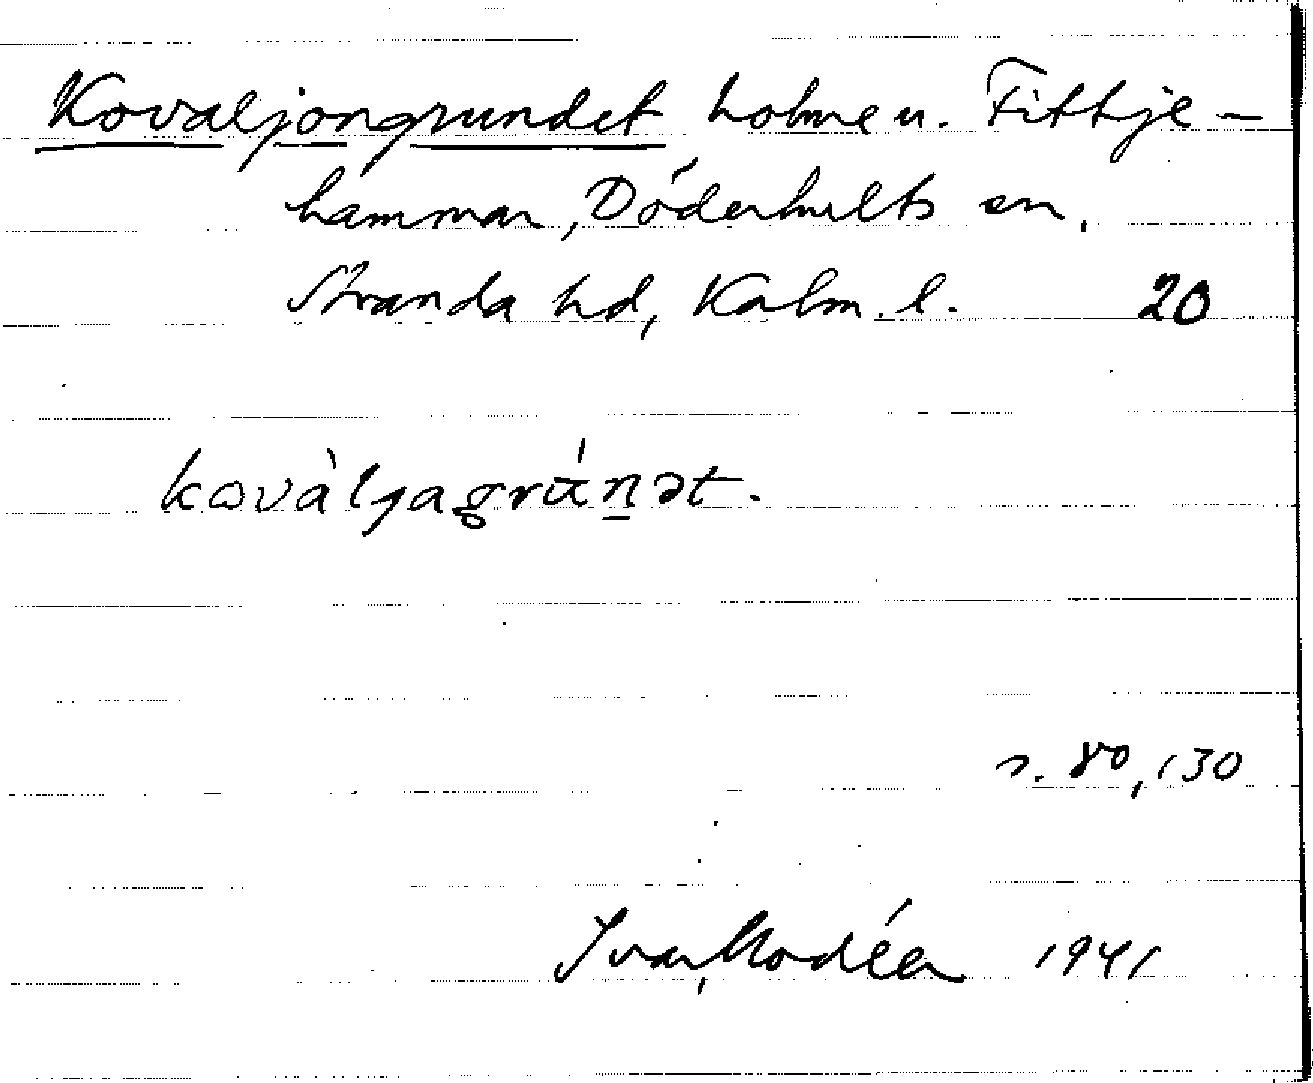 Kovaljongrundet holme u. Fittje-
hammar, Döderhults sn,
Stranda hd, Kalm. l. 20
kɷvàljagrún̲ət.
s. 80, 130
Ivar Modéer 1941